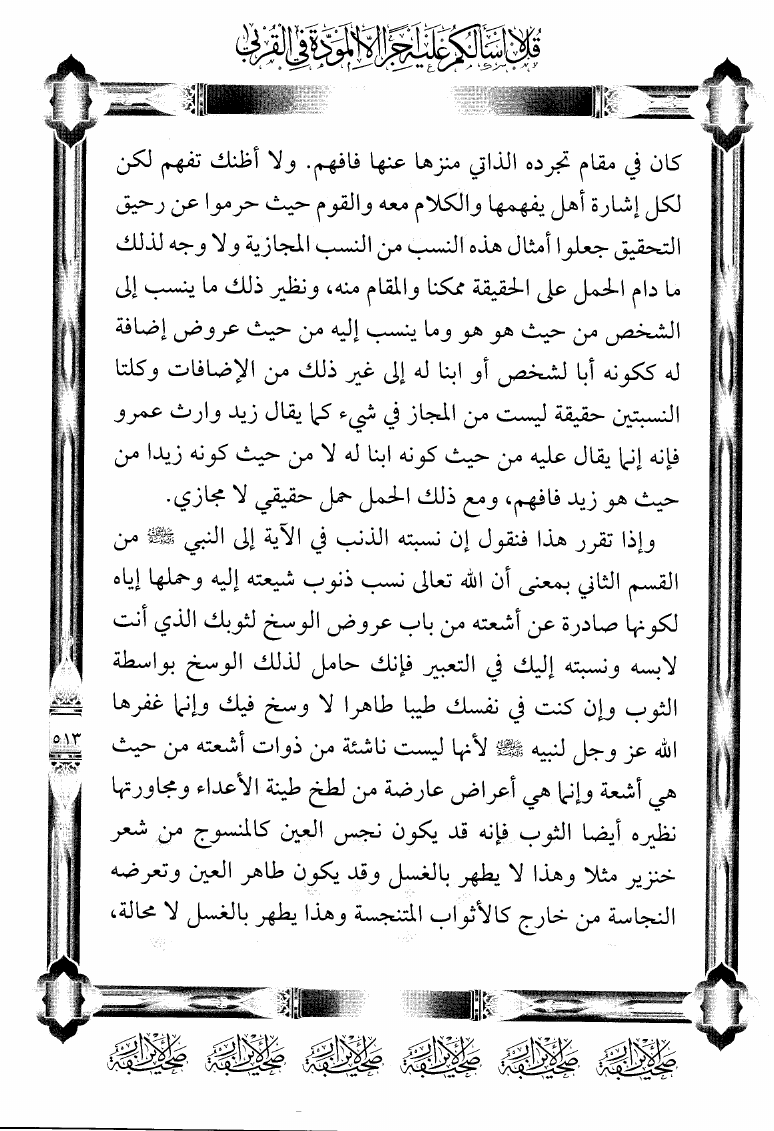 قل لا أسألكم عليه أجرا إلا المودة في القربى
كان في مقام تجرده الذاتي منزها عنها فافهم. ولا أظنك تفهم لكن
لكل إشارة أهل يفهمها والكلام معه والقوم حيث حرموا عن رحيق
التحقيق جعلوا أمثال هذه النسب من النسب المجازية ولا وجه لذلك
ما دام الحمل على الحقيقة ممكنا والمقام منه، ونظير ذلك ما ينسب إلى
الشخص من حيث هو هو وما ينسب إليه من حيث عروض إضافة
له ككونه أبا لشخص أو ابنا له إلى غير ذلك من الإضافات وكلتا
النسبتين حقيقة ليست من المجاز في شيء كما يقال زيد وارث عمرو
فإنه إنما يقال عليه من حيث كونه ابنا له لا من حيث كونه زيدا من
حيث هو زيد فافهم، ومع ذلك الحمل حمل حقيقي لا مجازي.
وإذا تقرر هذا فنقول إن نسبته الذنب في الآية إلى النبي ﷺ من
القسم الثاني بمعنى أن الله تعالى نسب ذنوب شيعته إليه وحملها إياه
لكونها صادرة عن أشعته من باب عروض الوسخ لثوبك الذي أنت
لابسه ونسبته إليك في التعبير فإنك حامل لذلك الوسخ بواسطة
الثوب وإن كنت في نفسك طيبا طاهرا لا وسخ فيك وإنما غفرها
الله عز وجل لنبيه ﷺ لأنها ليست ناشئة من ذوات أشعته من حيث
هي أشعة وإنما هي أعراض عارضة من لطخ طينة الأعداء ومجاورتها
نظيره أيضا الثوب فإنه قد يكون نجس العين كالمنسوج من شعر
خنزير مثلا وهذا لا يطهر بالغسل وقد يكون طاهر العين وتعرضه
النجاسة من خارج كالأثواب المتنجسة وهذا يطهر بالغسل لا محالة،
٥١٣
صحيفة الأبرار صحيفة الأبرار صحيفة الأبرار صحيفة الأبرار صحيفة الأبرار صحيفة الأبرار